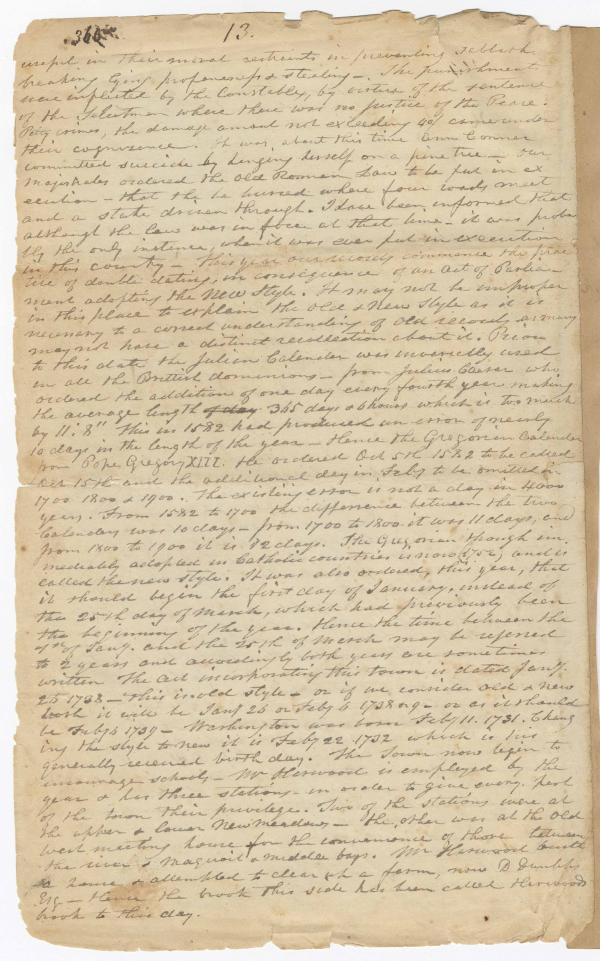 360 13.
useful in their moral restraints in preventing sabbath
breaking lying profaneness & stealing -. The punishments
were inflicted by the Constables, by virtue of the sentence
of the Selectmen where there was no justice of the Peace.
Petty crimes, the damage amount not exceeding 40/ came under
their cognizence. It was about this time Ann Conner
committed suicide by hanging herself on a pine tree - Our
Majestrates ordered the Old Roman Law to be put in ex
ecution - that she be burried where four roads meet
and a stake driven through. I have been informed that
although the law was in force at that time - it was proba
bly the only instance, when it was ever put in execution
in this county - This year our records commence the prac
tice of double dating, in consequence of an act of Parlia-
ment adopting the New Style. It may not be improper
in this place to explain the Old & New Style as it is
necessary to a correct understanding of old records as many
may not have a distinct recollection about it. Prior
to this date the Julian Calender was universally used
in all the British dominions - from Julius Caesar who
ordered the addition of one day every fourth year making
the average length of day 365 days & 6 hours which is too much
by 11' 8" This in 1582 had produced an error of nearly
10 days in the length of the year - Hence the Gregorian Calender
from Pope Gregory XIII. He ordered Oct 5th 1582 to be called
Oct 15th and the additional day in Feby to be omitted in
1700 1800 & 1900. The existing error is not a day in 4000
years. From 1582 to 1700 the difference between the two
Calenders was 10 days - from 1700 to 1800 it was 11 days, and
from 1800 to 1900 it is 12 days. The Gregorian though im.
mediately adopted in Catholic countries is now 1752, and is
called the new style. It was also ordered, this year, that
it should begin the first day of January, instead of
the 25th day of March, which had previously been
the beginning of the year. Hence the time between the
1st of Jany. and the 25th of March may be referred
to 2 years and accordingly both years are sometimes
written The act incorporating this town is dated Jany.
26 1738 - This is old style - or if we consider old & new
both it will be Jany 26 or Feby 6 1738 or 9 - or as it should
be Feby 6 1739 - Washington was born Feby 11. 1731. Chang
ing the style to new it is Feby 22 1732 which is his
generally received birth day. The Town now begin to
encourage schools - Mr Harwood is employed by the
year & has three stations - in order to give every part
of the town their privilege. Two of the stations were at
the upper & lower New meadows - the other was at the Old
west meeting house for the convenience of those between
the river & Maquoit & middle bays. Mr Harwood built
a house & attempted to clear up a farm, now D Dunlaps
Esq - Hence the brook this side has been called Harwoods
brook to this day.